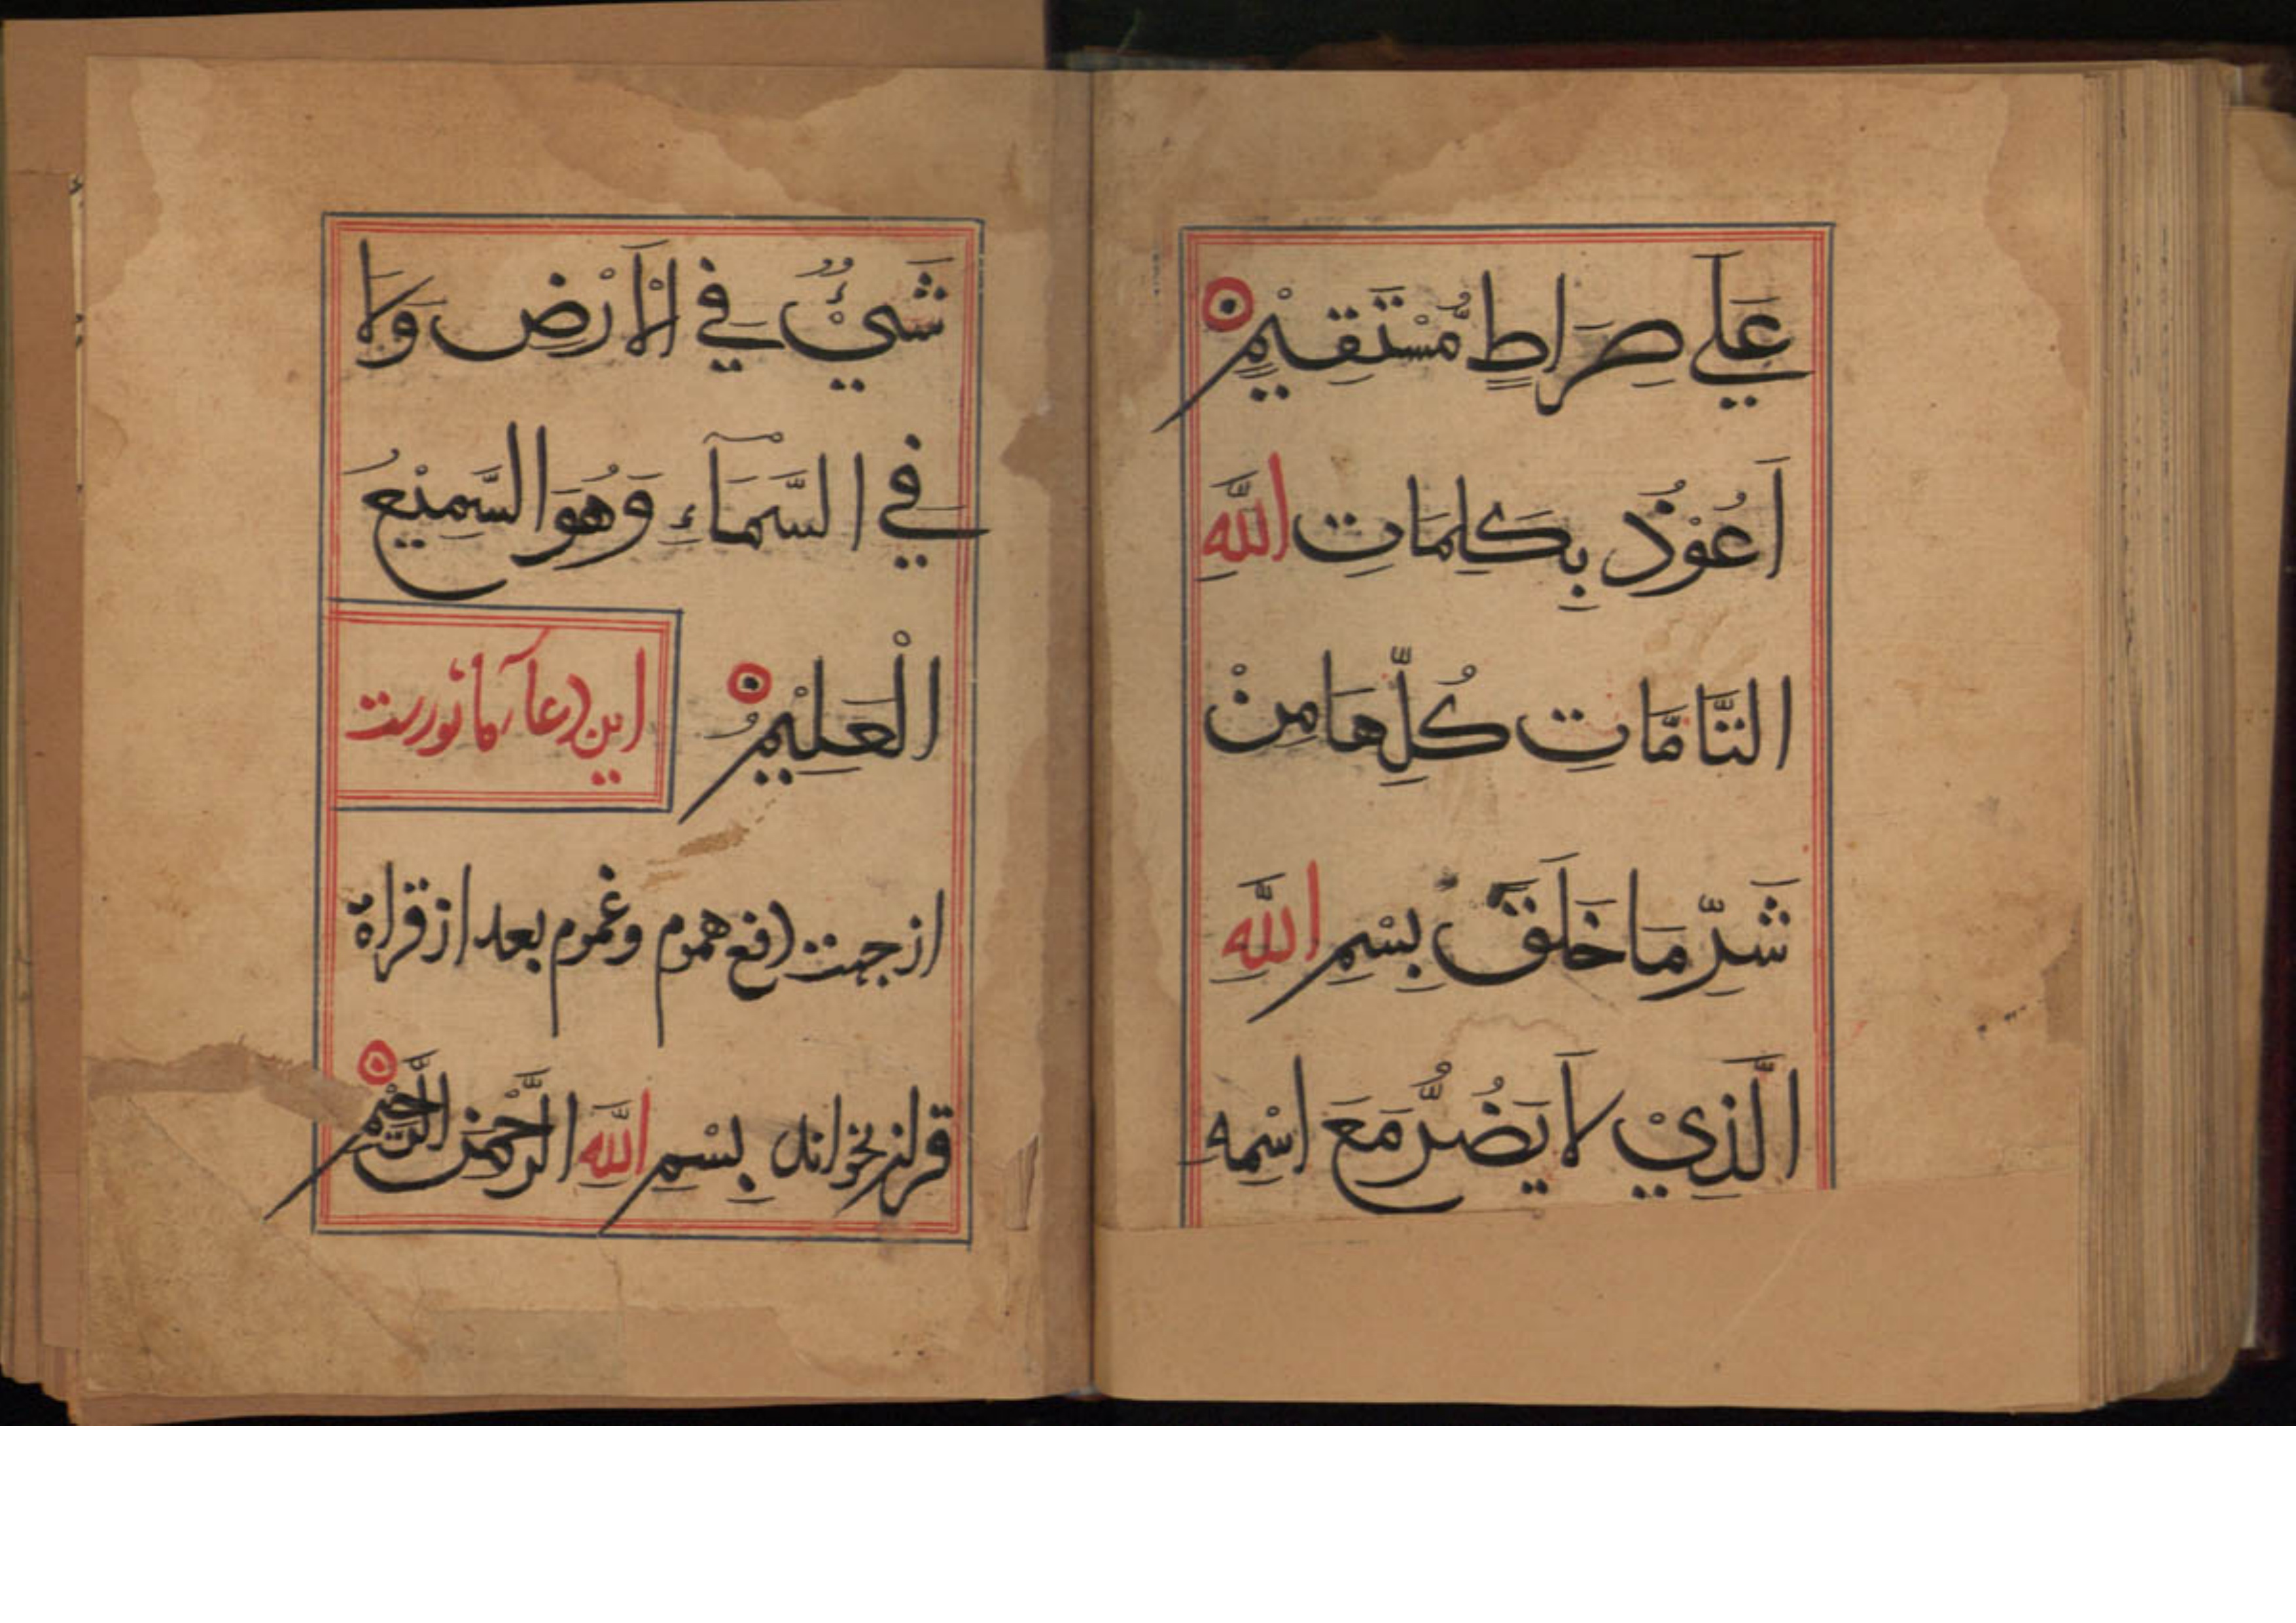 عَلَي صِرَاطٍ مُّسْتَقِيْمٍ
اَعُوْذُ بِكَلِمَاتِ اللّٰهِ
التَّامَّاتِ كُلِّهَا مِنْ
شَرِّ مَا خَلَقَ بِسْمِ اللّٰهِ
الَّذِيْ لَا يَضُرُّ مَعَ اسْمِهِ
شَيْءٌ فِي الْاَرْضِ وَلَا
فِي السَّمَآءِ وَهُوَ السَّمِيْعُ
الْعَلِيْمُ
این دعا ماثورست
از جهت دفع هموم وغموم بعد از قراة
قران بخوانند بِسْمِ اللّٰهِ الرَّحْمٰنِ الرَّحِيْمِ